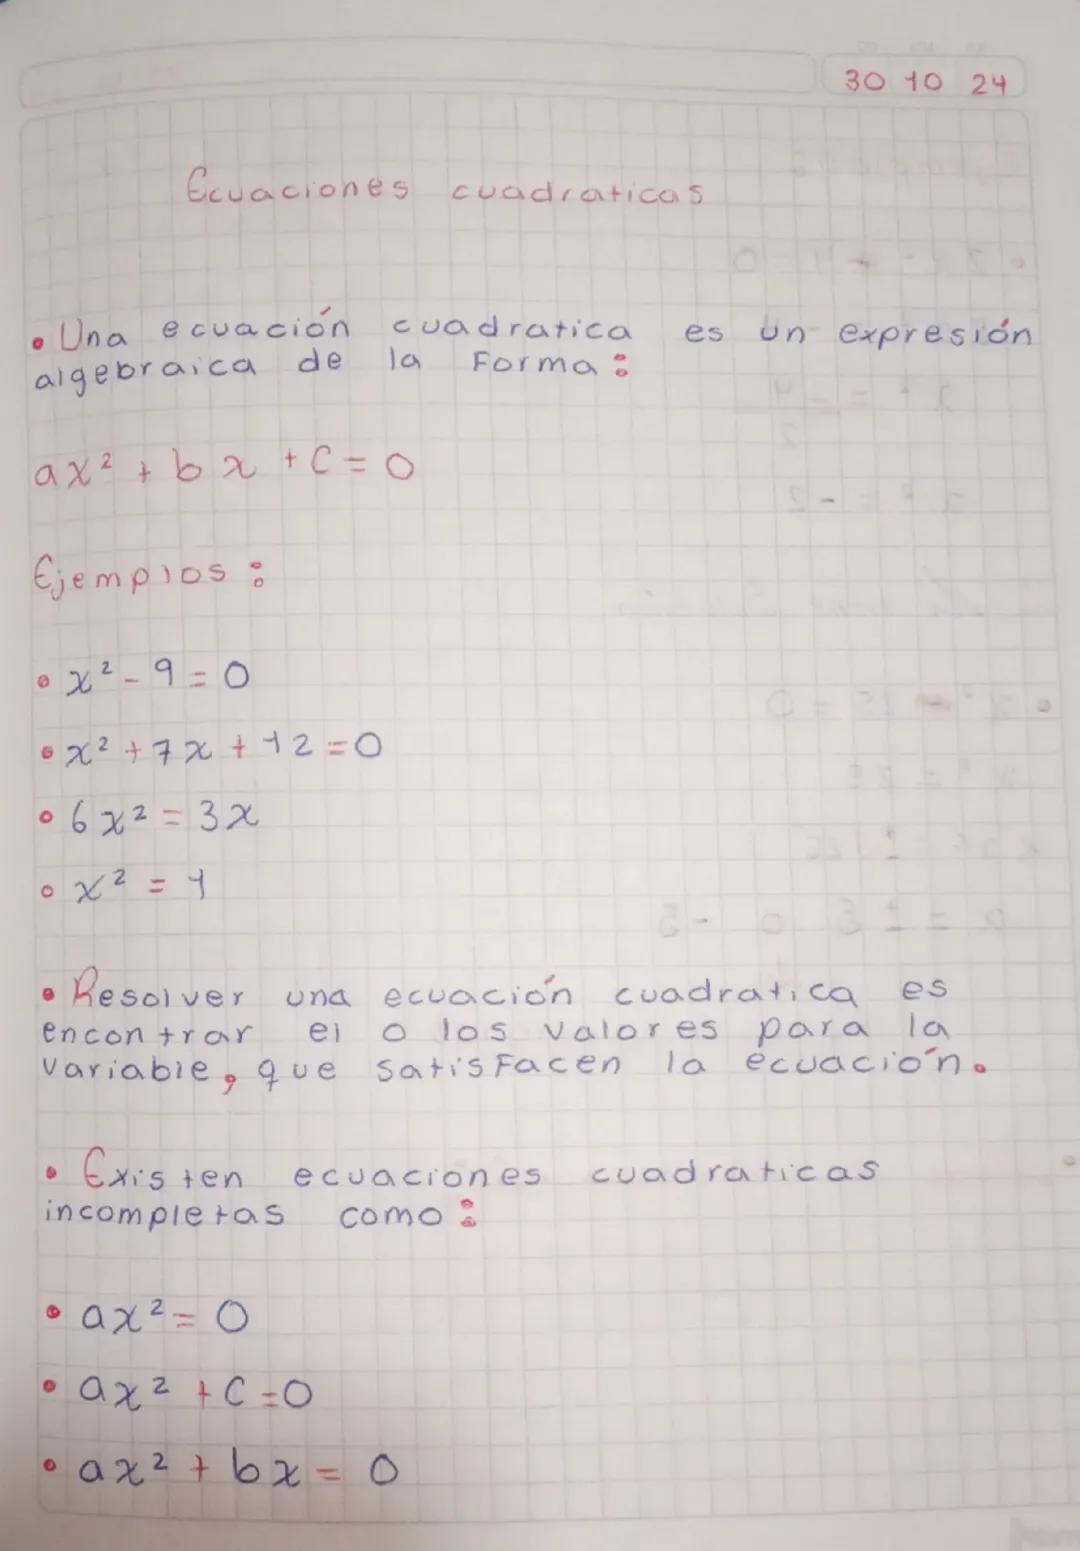 30 10 24
Ecuaciones cuadraticas
• Una ecuación cuadratica es un expresión
algebraica de la Forma:
ax² + bx + C = 0
Ejemplos:
• x² - 9 = 0
• x² + 7x + 12 = 0
• 6x² = 3x
• x² = 1
• Resolver una ecuación cuadratica es
encontrar el o los valores para la
variable, que satisfacen la ecuación.
• Existen ecuaciones cuadraticas
incompletas como:
• ax² = 0
• ax² + C = 0
• ax² + bx = 0